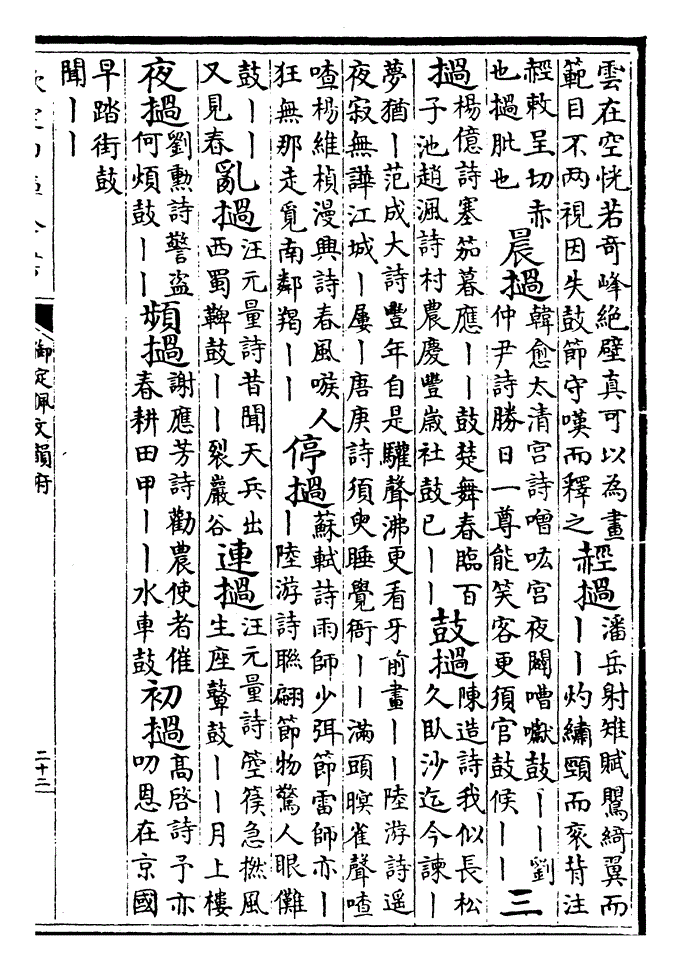 雲在空恍若奇峰絶壁真可以為畫範目不兩視因失鼓節守嘆而釋之䞓撾潘岳射雉賦鷩綺翼而丨丨灼繡頸而衮背注
䞓敕呈切赤也撾肶也晨撾韓愈太清宫詩噌吰宫夜闢嘈囐鼓丨丨劉仲尹詩勝日一尊能笑客更須官鼓候丨丨三
撾楊億詩塞笳暮應丨丨鼓楚舞春臨百子池趙渢詩村農慶豐嵗社鼓已丨丨鼓撾陳造詩我似長松久臥沙迄今諫丨
夢猶丨范成大詩豐年自是驩聲沸更看牙前畫丨丨陸游詩遥夜寂無譁江城丨屢丨唐庚詩須臾睡覺衙丨丨滿頭暝雀聲喳
喳楊維楨漫興詩春風喉人狂無那走覓南鄰羯丨丨停撾蘇軾詩雨師少弭節雷師亦丨丨陸游詩聯翩節物驚人眼儺
鼓丨丨又見春亂撾汪元量詩昔聞天兵出西蜀鞞鼓丨丨裂巖谷連撾汪元量詩箜篌急撚風生座鼙鼓丨丨月上樓
夜撾劉勳詩警盗何煩鼓丨丨頻撾謝應芳詩勸農使者催春耕田甲丨丨水車鼓初撾高啓詩予亦叨恩在京國
早踏街鼓聞丨丨
御定佩文韻府
二十二